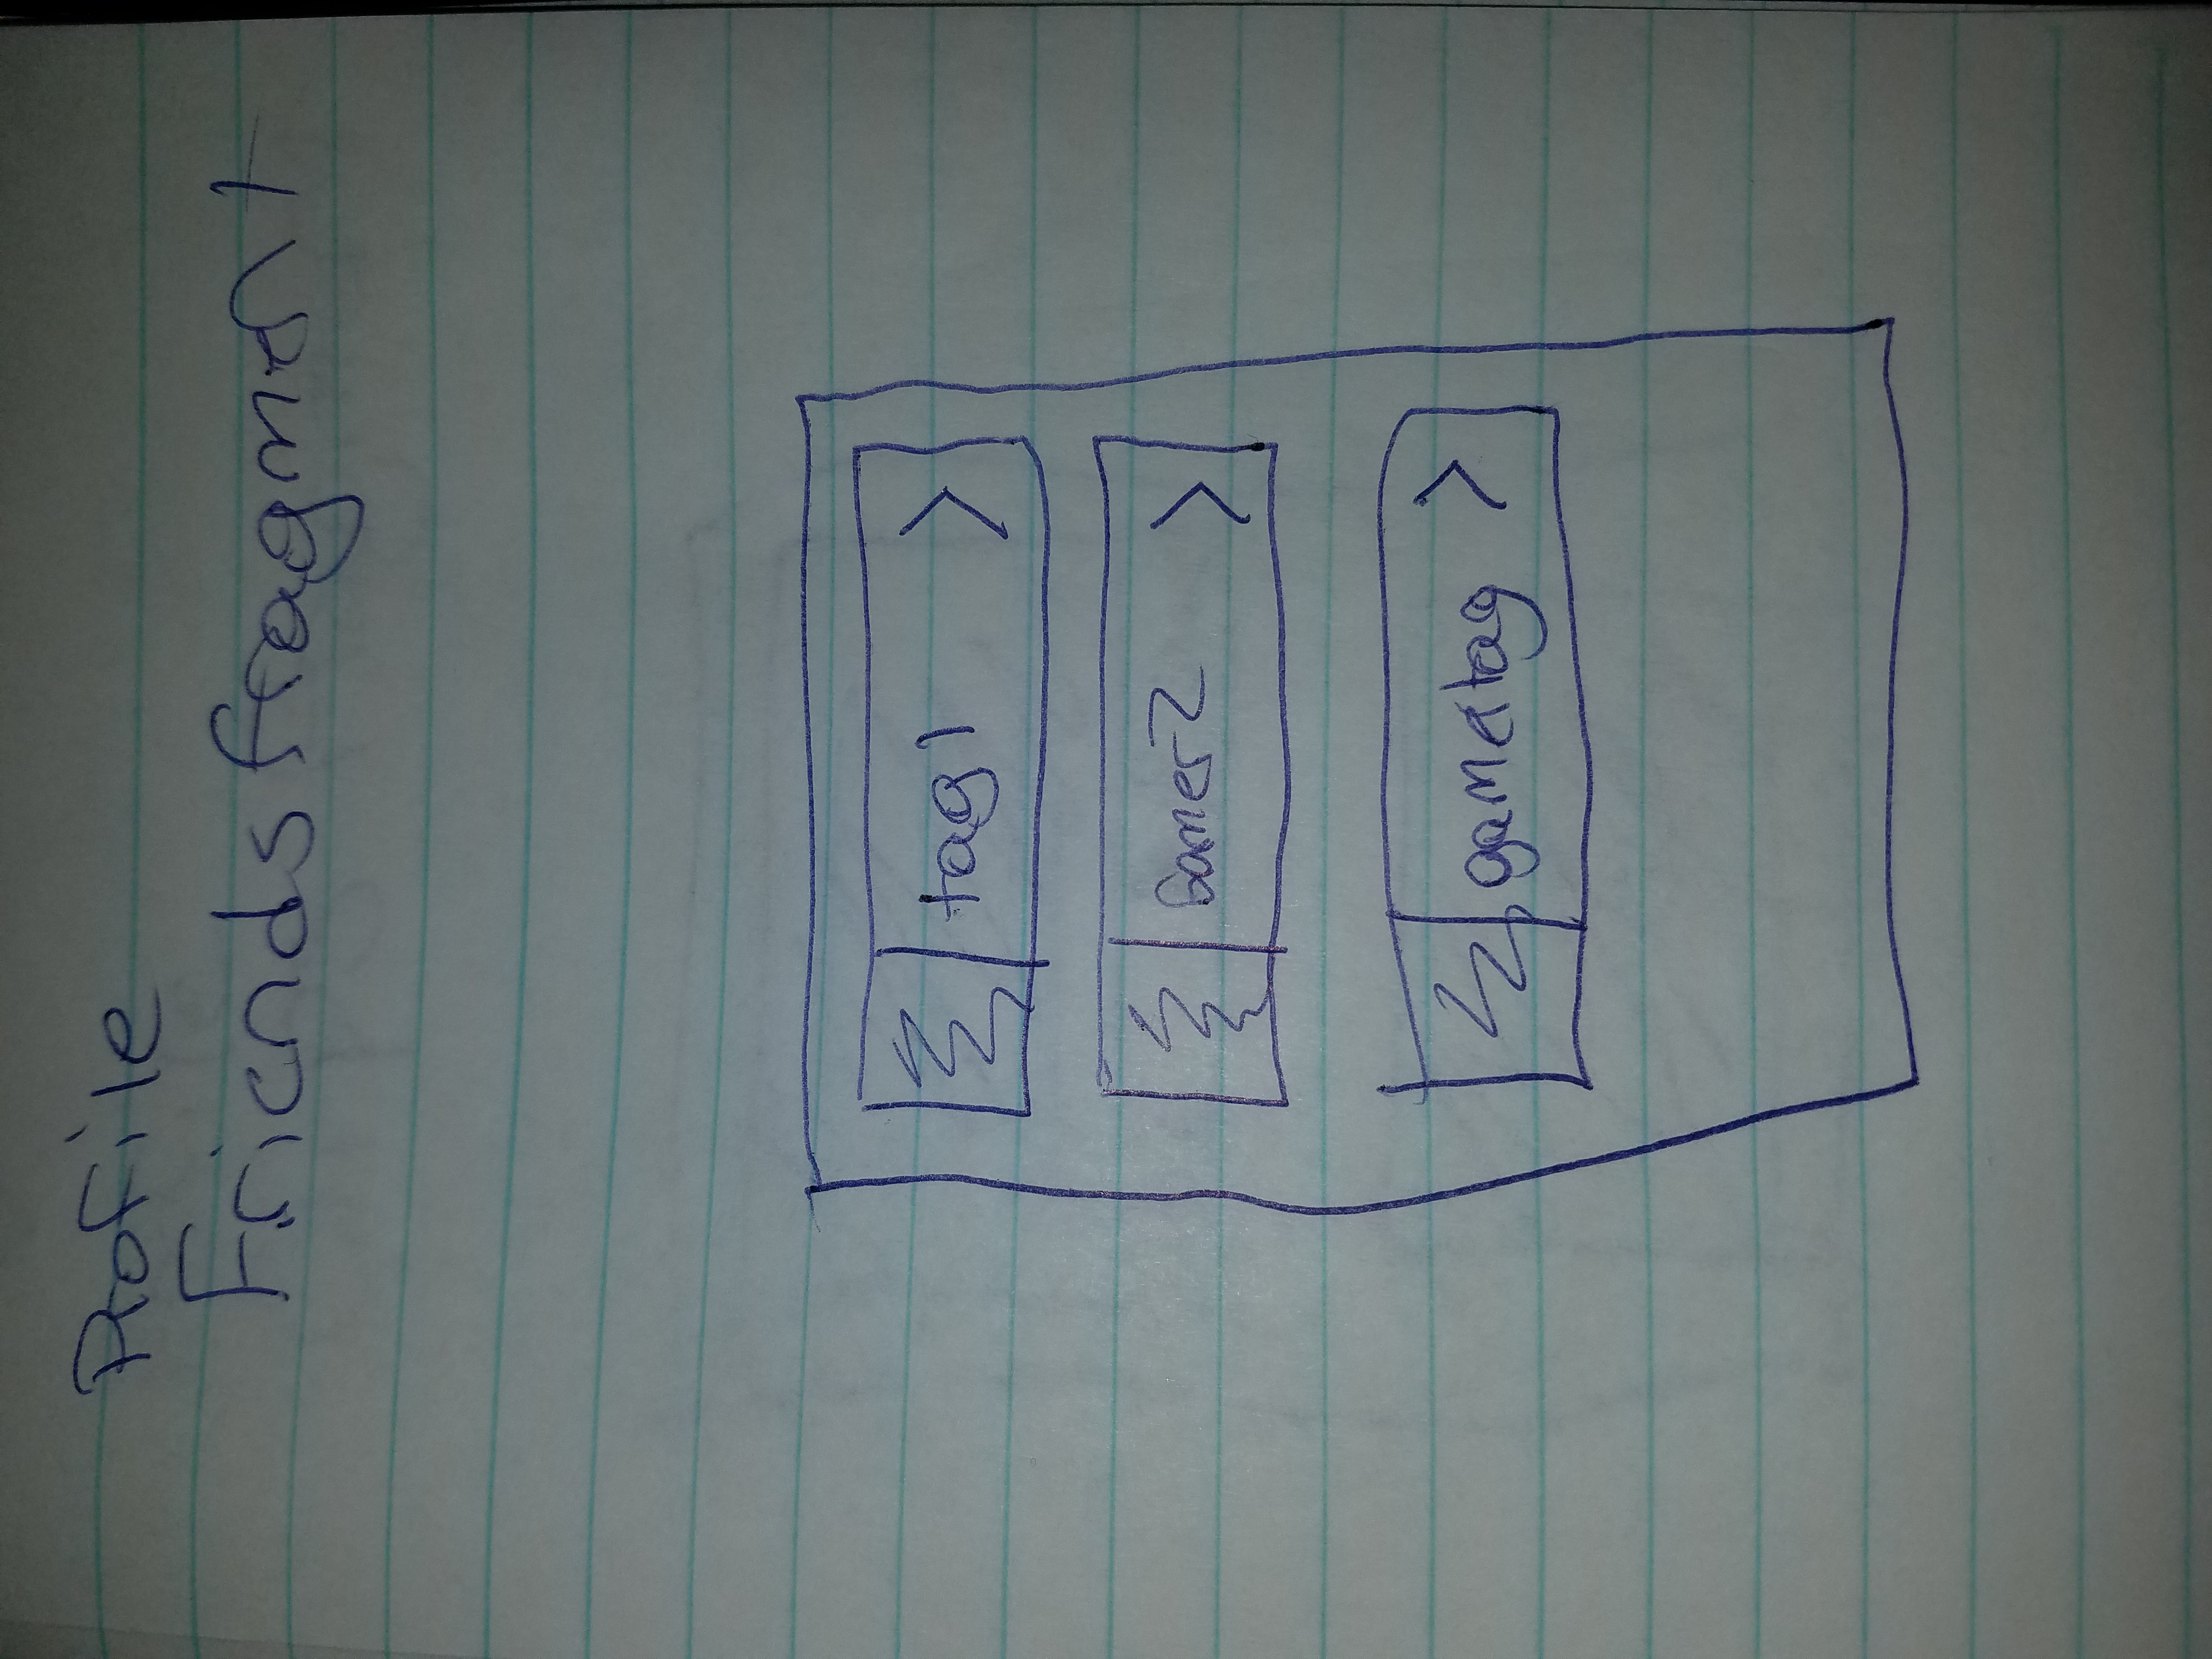 Profile
Friends fragment
tag1 >
Gamer2 >
gamertag >